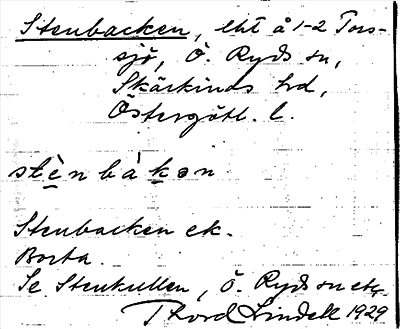 Stenbacken, lht å 1-2 Tors-
sjö, Ö. Ryds sn,
Skärkinds hd,
Östergötl. l.
stènbàkən
Stenbacken ek.
Borta.
Se Stenkullen, Ö. Ryds sn etc.
Thord Lindell 1929